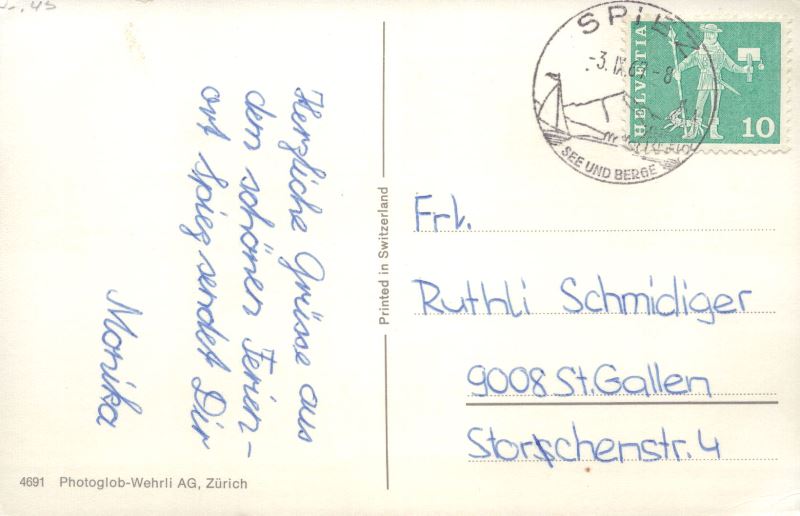 Nr. 45
Herzliche Grüsse aus
dem schönen Ferien-
ort Spiez sendet Dir
Monika
4691 Photoglob-Wehrli AG, Zürich
Printed in Switzerland
SPIEZ
-3.IX.67-8
SEE UND BERGE
HELVETIA
10
Frl.
Ruthli Schmidiger
9008 St. Gallen
Storschenstr. 4